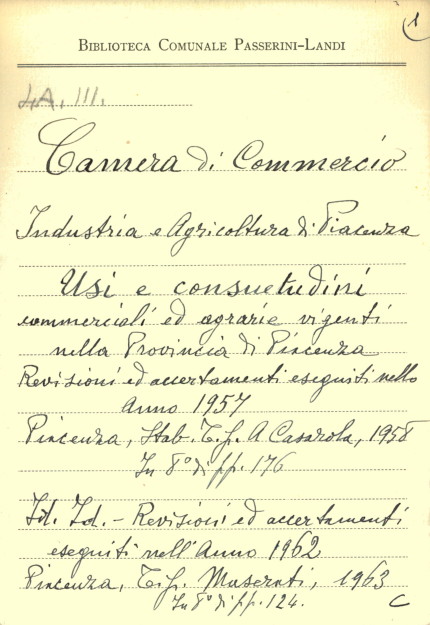 1
BIBLIOTECA COMUNALE PASSERINI-LANDI
4A. III.
Camera di Commercio
Industria e Agricoltura di Piacenza
Usi e consuetudini
commerciali ed agrarie vigenti
nella Provincia di Piacenza
Revisioni ed accertamenti eseguiti nello
Anno 1957
Piacenza, Stab. Tip. A Casarola, 1958
In 8° di pp. 176
Id. Id. - Revisioni ed accertamenti
eseguiti nell'Anno 1962
Piacenza, Tip. Maserati, 1963
In 8° di pp. 124.
C